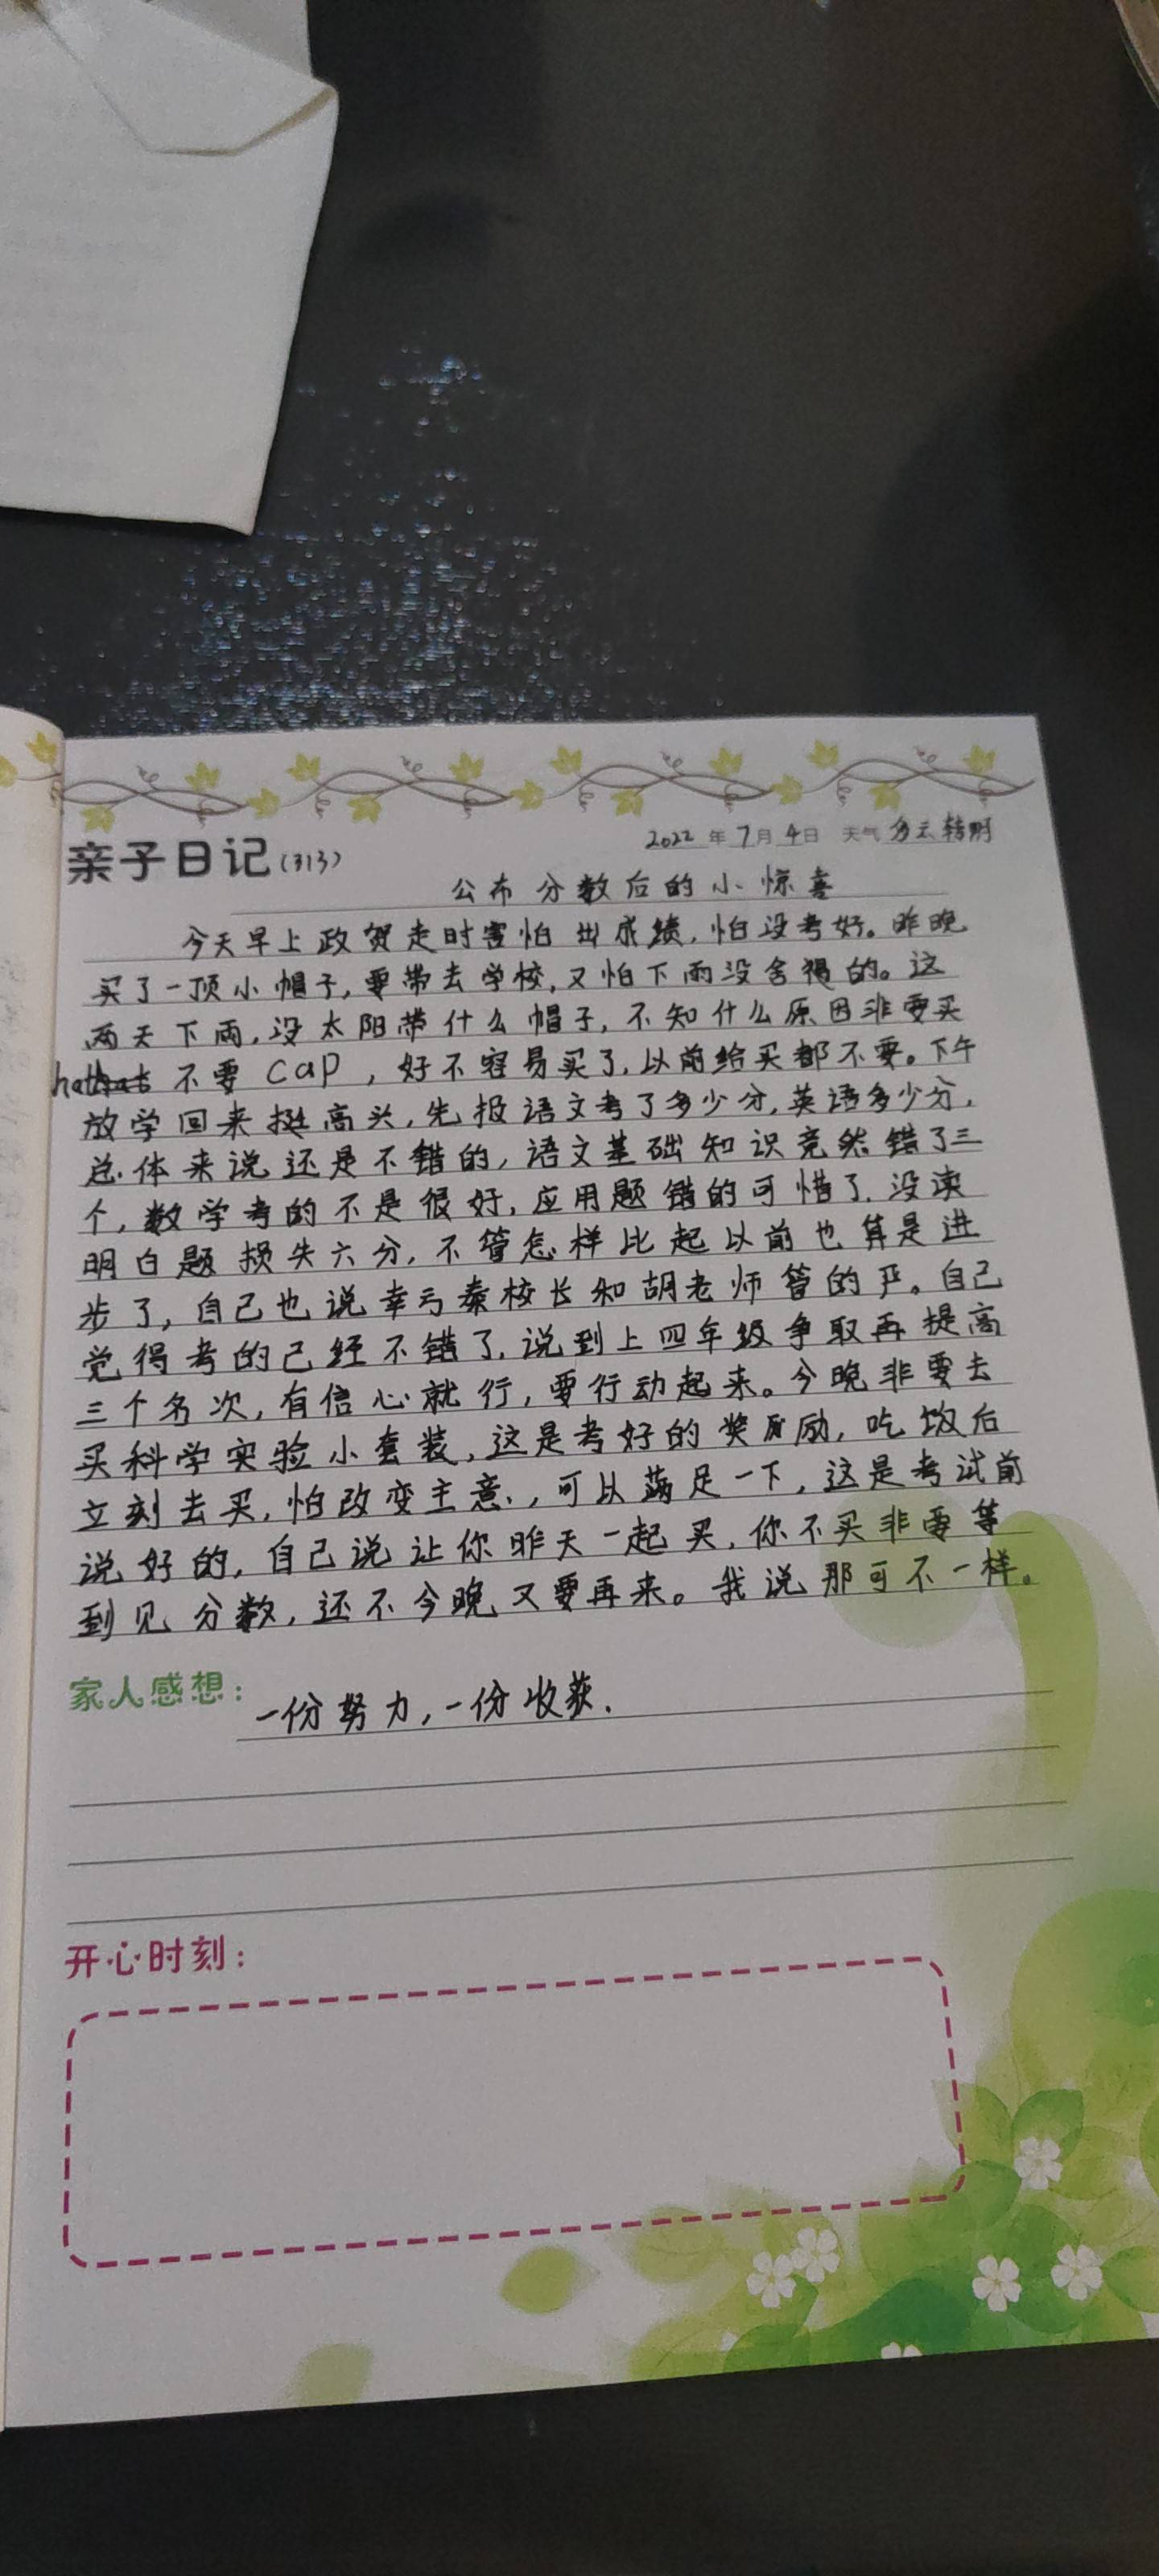 亲子日记(313)
2022年7月4日 天气 多云转阴
公布分数后的小惊喜
今天早上政贺走时害怕出成绩,怕没考好。昨晚
买了一顶小帽子,要带去学校,又怕下雨没舍得的。这
两天下雨,没太阳带什么帽子,不知什么原因非要买
hat 不要 cap,好不容易买了,以前给买都不要。下午
放学回来挺高兴,先报语文考了多少分,英语多少分,
总体来说还是不错的,语文基础知识竟然错了三
个,数学考的不是很好,应用题错的可惜了,没读
明白题损失六分,不管怎样比起以前也算是进
步了,自己也说幸亏秦校长和胡老师管的严。自己
觉得考的已经不错了,说到上四年级争取再提高
三个名次,有信心就行,要行动起来。今晚非要去
买科学实验小套装,这是考好的奖励,吃饭后
立刻去买,怕改变主意,可以满足一下,这是考试前
说好的,自己说让你昨天一起买,你不买非要等
到见分数,还不今晚又要再来。我说那可不一样。
家人感想:
一份努力,一份收获.
开心时刻: